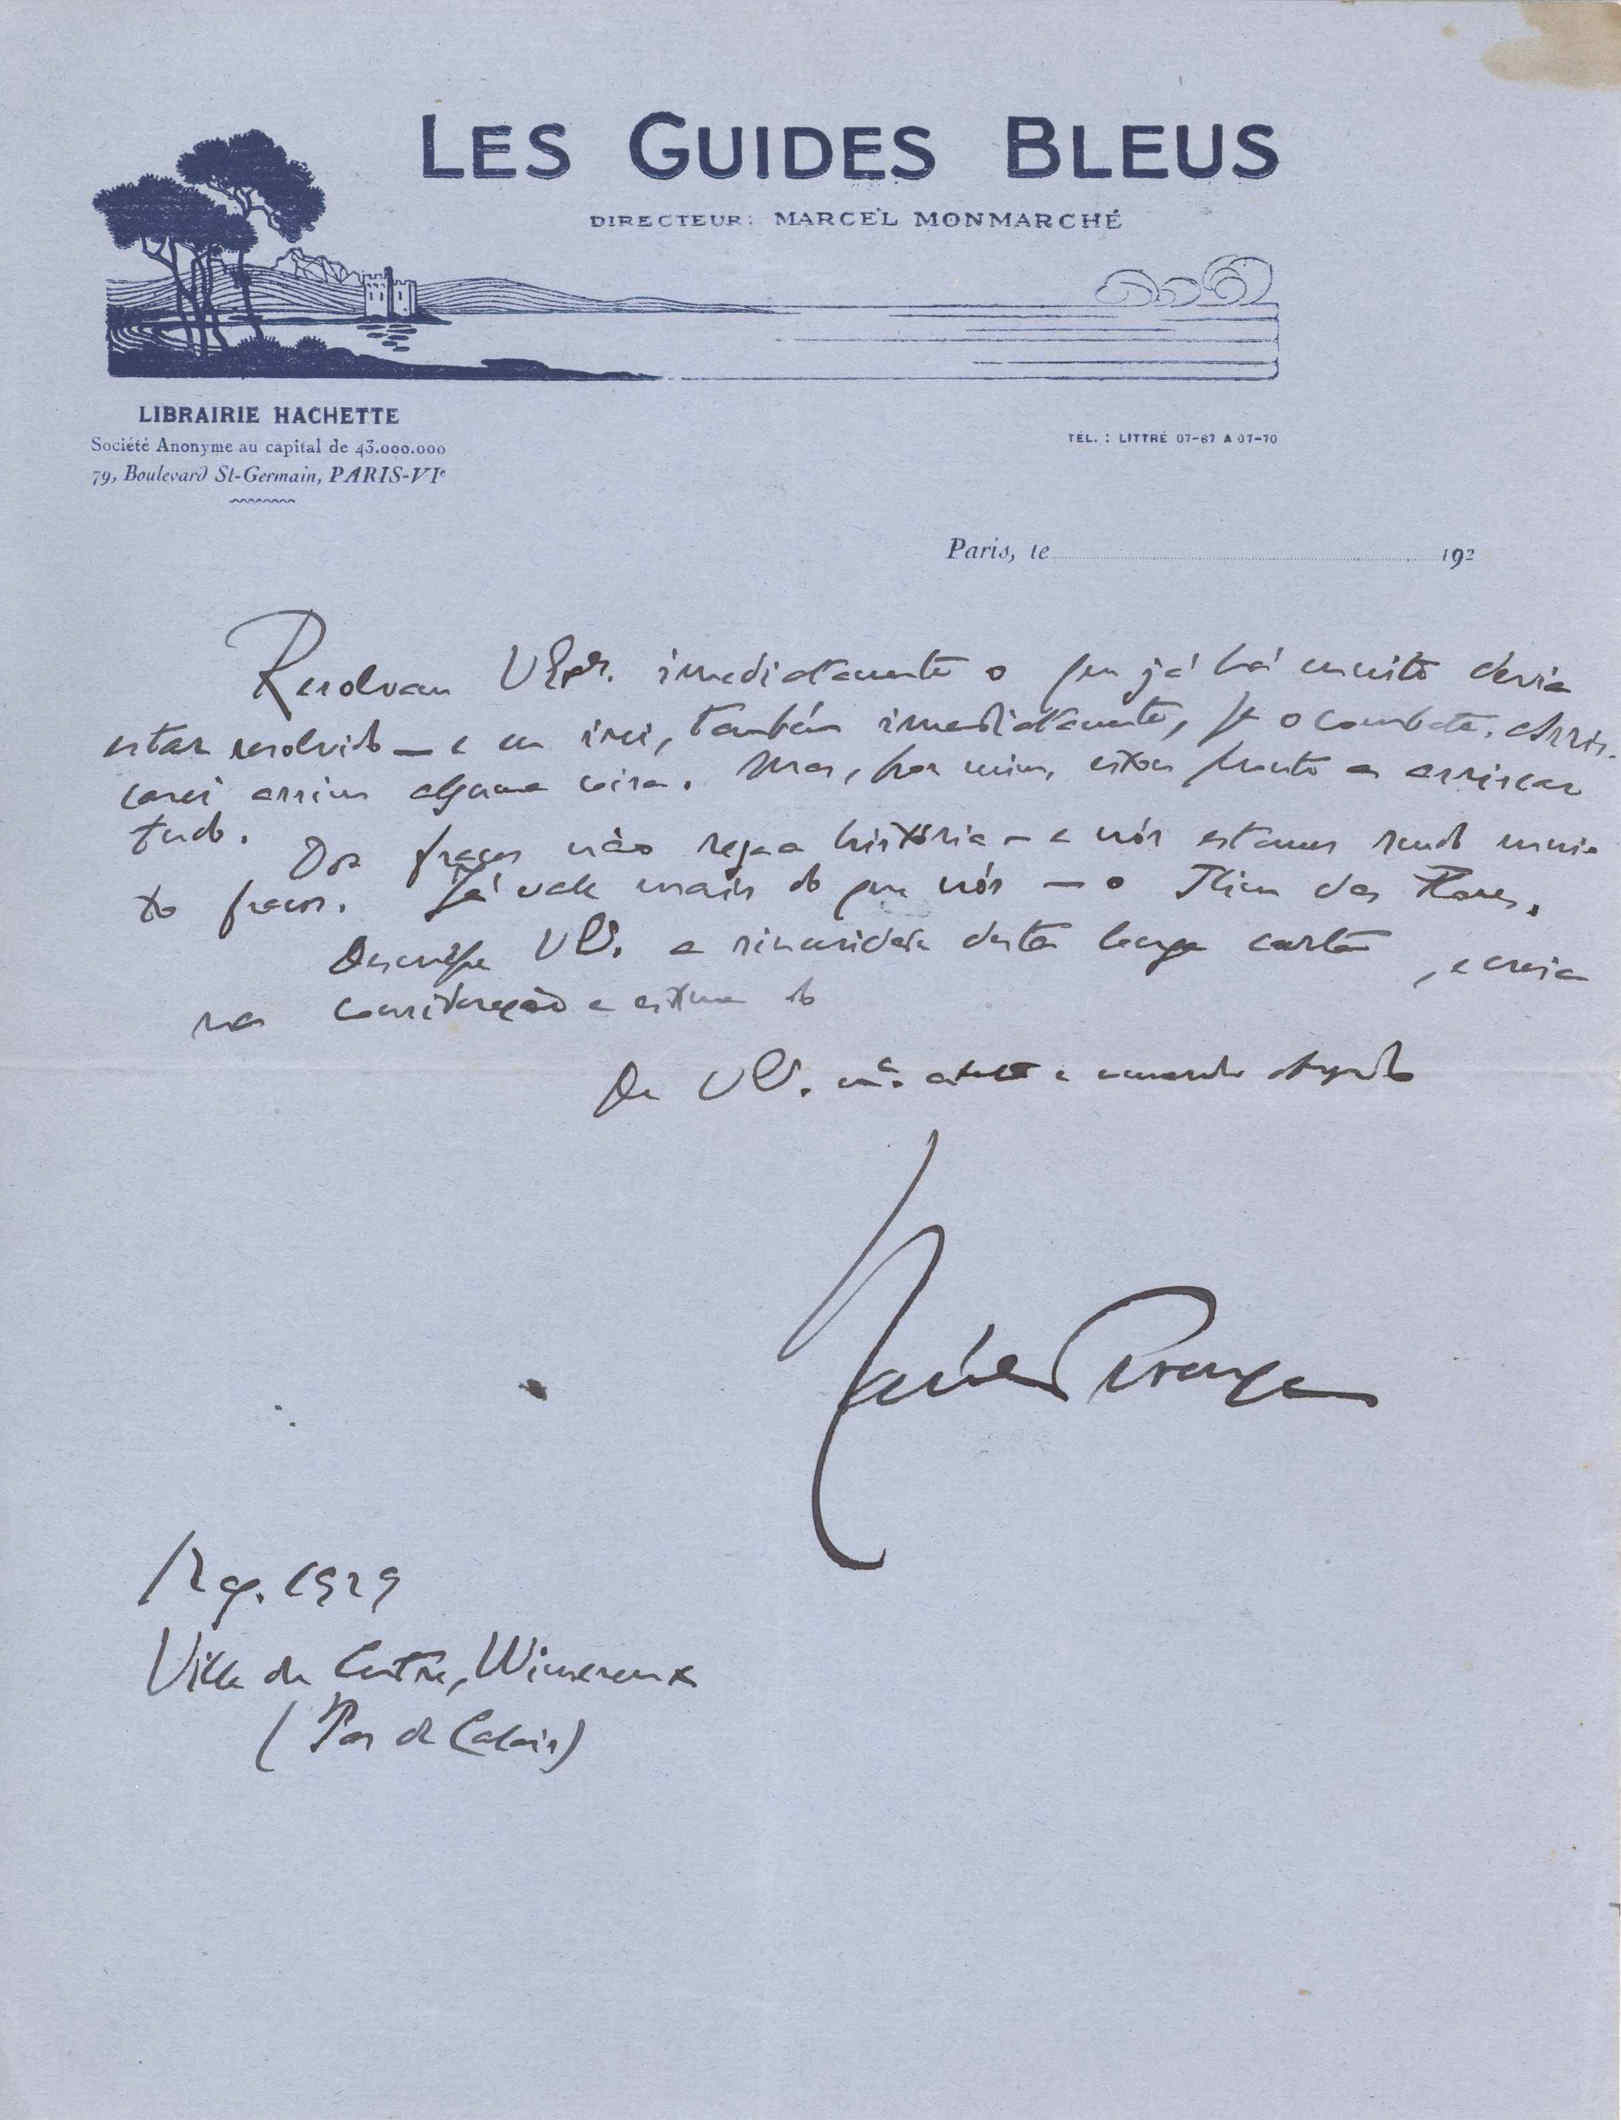 LES GUIDES BLEUS
DIRECTEUR: MARCEL MONMARCHÉ
LIBRAIRIE HACHETTE
Société Anonyme au capital de 43.000.000
79, Boulevard St-Germain, PARIS-VIe
TÉL. : LITTRÉ 07-67 A 07-70
Paris, le 192
Resolvam VExas. imediatamente o que já há muito devia
estar resolvido — e eu irei, também imediatamente, p.a o combate. Arris-
carei assim alguma coisa. Mas, por mim, estou pronto a arriscar
tudo. Dos fracos não resa a história — e nós estamos sendo mui-
to fracos. Já vale mais do que nós — o Jiem das Flores.
Desculpe VEx. a sinceridade desta longa carta, e creia
na consideração e estima do
De VEx. m.to e obrigado
12 ag. 1929
Villa du Centre, Wimereux
(Pas de Calais)